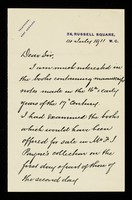 39, RUSSELL SQUARE,
W.C.
10 July 1911
Dear Sir,
I am much interested in
the books containing manuscript
notes made in the 16th early
years of the 17th Century.
I had examined the books
which would have been
offered for sale in Mr J.F.
Payne's collection on the
first day & part of them of
the second day